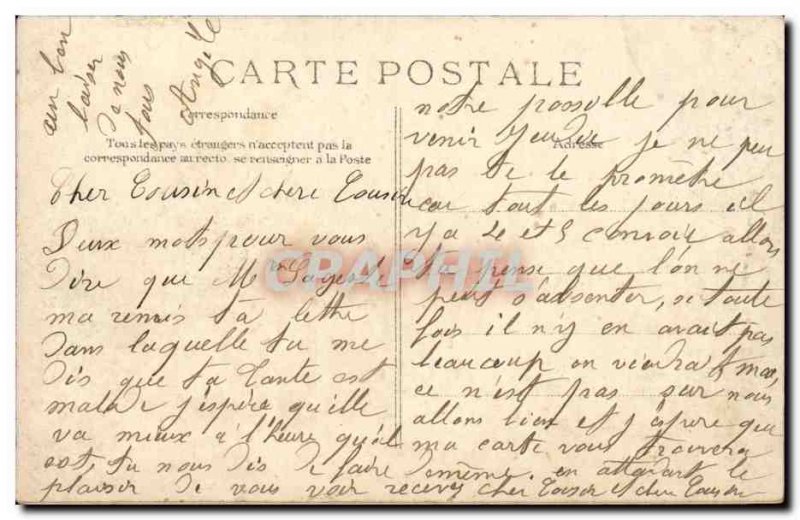 CARTE POSTALE
Correspondance
Tous les pays étrangers n'acceptent pas la
correspondance au recto, se renseigner à la Poste
Adresse
Cher Cousin et chere Cousine
Deux mots pour vous
dire que Mm
ma remis ta lettre
dans laquelle tu me
dis que ta tante est
malade j'espère qu'elle
va mieux a l'heure qu'il
est, tu nous dis de faire
notre possible pour
venir Jeudi je ne peu
pas de le promètre
car tout les jours il
y a 4 et 5 convoie allons
tu pense que l'on ne
peut s'absenter, si toute
fois il n'y en avait pas
beaucoup on viendrat mai
ce n'est pas sur nous
allons bien et j'espère que
ma carte vous trouvera
de même. en attendant le
plaisir de vous voir recevez cher Cousin et chere Cousine
un bon
baiser
de nous
tous
Angèle
CPAPHIL